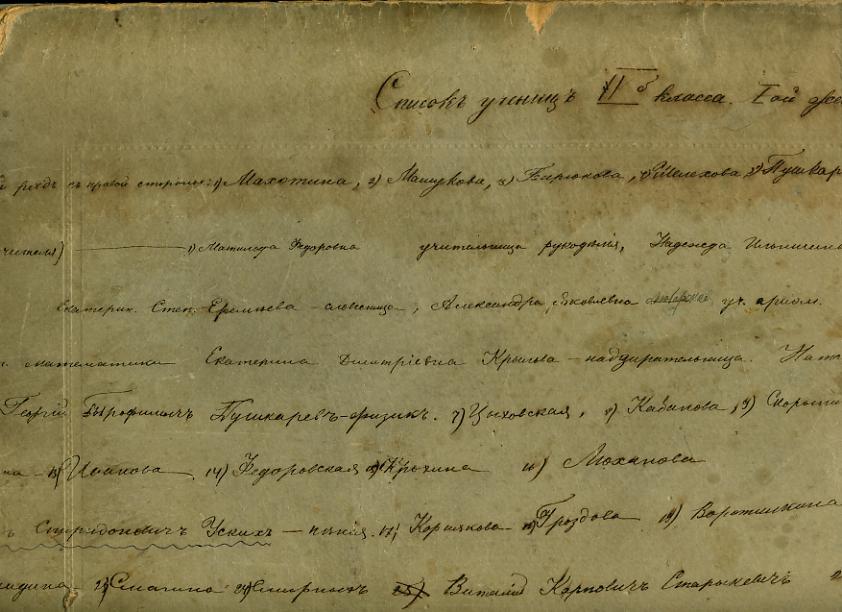 Списокъ ученицъ VII б класса. I ой
рядъ съ правой стороны: 1) Махотина, 2) Машукова, 3) Бирюкова, 4) Шелехова 5) Пушкар
1) Матильда Федоровна учительница рукодѣлія, Надежда Ильинична
Екатерин. Степ. Еремѣева - словесница, Александра Яковлевна уч. ариѳм.
математика Екатерина Димитріевна Крылова - надзирательница.
Георгій Пушкаревъ - физик. 7) Цыховская, 8) Кабакова, 9)
13) Исакова 14) Федоровская 15) Крюхина 16) Моханова
Спиридоновичъ Ускихъ - пѣнія. 17) Корпякова 18) Гроздова 19) Воротилкина
Смагина Смирныхъ Виталій Карповичъ Старыкевичъ 2